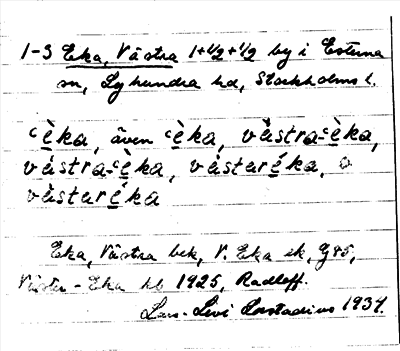 1-3 Eka, Västra 1+1/2+1/2 by i Estuna
sn, Lyhundra hd, Stockholms l.
ʿèka, även ʿèka, västra-ʿèka,
västra-ʿèka, västeréka, o
västeréka
Eka, Västra bek, V. Eka ek, G85,
Väster-Eka hb 1925, Radloff.
Lars-Levi Læstadius 1934.